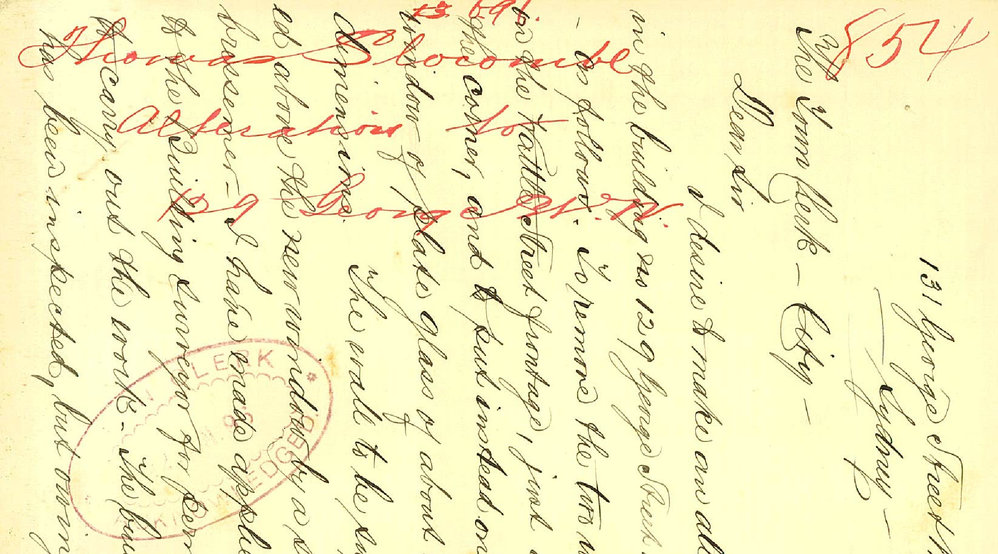 854
13.6.91.
Thomas Slocombe
Alteration to
129 George St. N.
131 George Street
Sydney
The Town Clerk - City -
Dear Sir
I desire to make an al
in the building no 129 George Street
as follows. To remove the two w
on the Street frontage, just
the corner, and to put instead on
window of plate glass of about
dimensions. The wall to be su
ed above the new window by a
brassumer - I have made applic
to the Building Surveyor for perm
to carry out the work. The bui
has been inspected, but owing
CLERK
ACKNOWLEDGED.